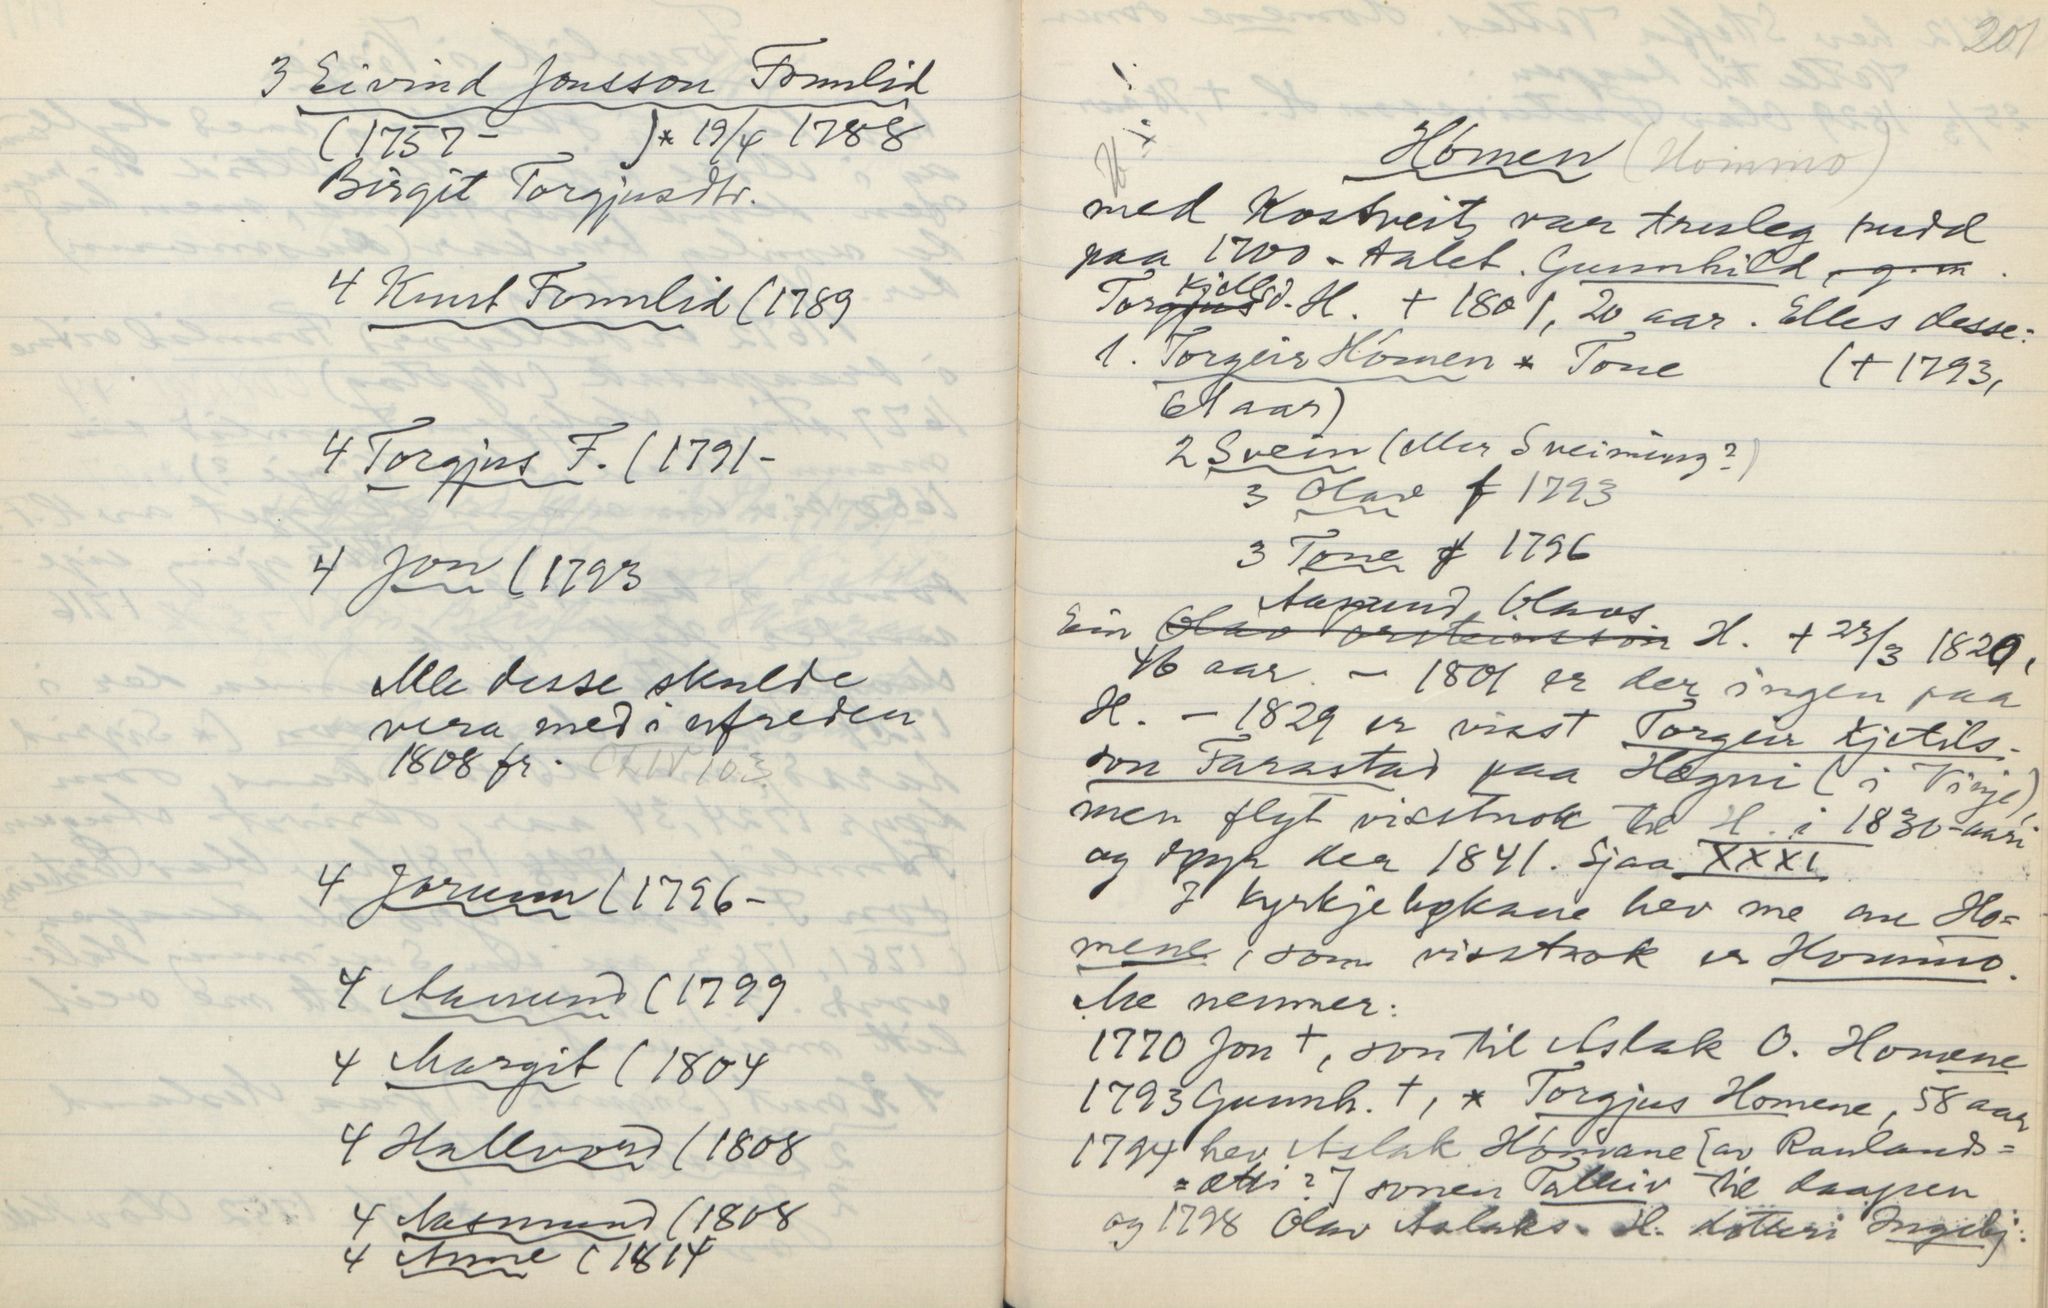 3 Eivind Jonsson Fonnlid
(1757 - )* 19/4 1788
Birgit Torgjusdtr.
4 Knut Fonnlid (1789
4 Torgjus F. (1791-
4 Jon (1793
Alle desse skulde
vera med i ufreden
1808 fr. CLIV 103
4 Jorunn (1796-
4 Aamund (1799
4 Margit (1804
4 Hallvord (1808
4 Aasmund (1808
4 Anne (1814
201
Hómen (Hommo)
med Kostveit, var truleg rudd
paa 1700-talet. Gunnhild
Torkjellsd. H. + 1801, 20 aar. Elles desse:
1. Torgeir Hómen * Tone (+ 1793,
61 aar)
2 Svein (eller Sveinung?)
3 Olav f 1793
3 Tone f 1796
Aamund Olavs.
Ein Olav Torsteinsson H. + 23/3 1820,
46 aar. - 1801 er der ingen paa
H. - 1829 er visst Torgeir Kjetils-
son Farastad paa Hægni (i Vinje)
men flyt visstnok til H. i 1830-aari
og døyr der 1841. Sjaa XXXI
I kyrkjebøkane hev me en Ho=
mene, som visstnok er Hommo.
Me nemner:
1770 Jon +, son til Aslak O. Homene
1793 Gunnh. +, * Torgjus Homene, 58 aar
1794 hev Aslak Hómane [av Raulands=
=ætti?] sonen Talleiv til daapen
og 1798 Olav Aslaks. H. dotteri Ingebj: